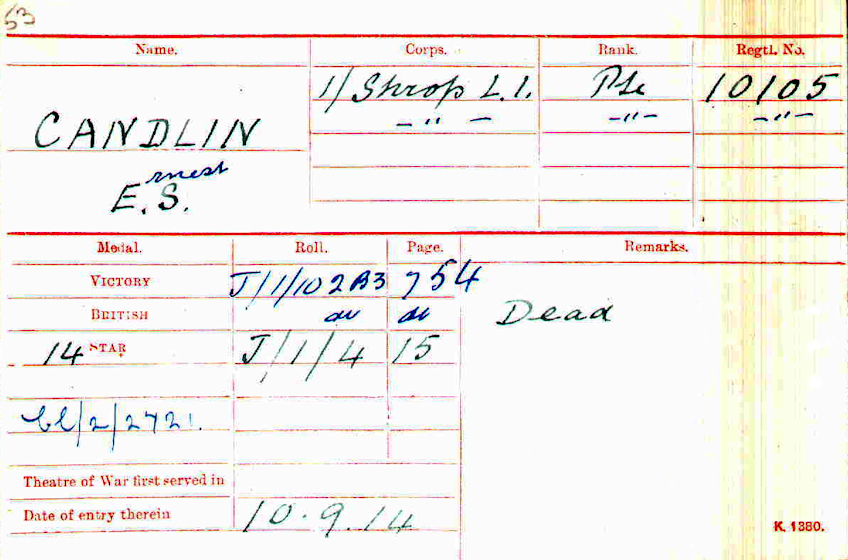 53
Name. Corps. Rank. Regtl. No.
CANDLIN 1/Shrop L.I. Pte 10105
-"- -"- -"-
ernest
E.S.
Medal. Roll. Page. Remarks.
VICTORY J/1/102B3 754
BRITISH do do Dead
14 STAR J/1/4 15
cl/2/2721.
Theatre of War first served in
Date of entry therein 10.9.14
K. 1380.